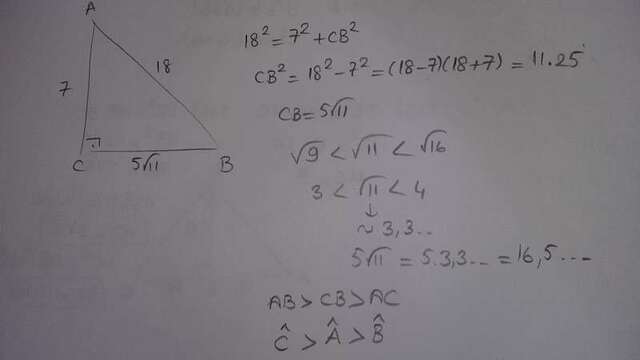 A
7
C
18
5√11
B
18² = 7² + CB²
CB² = 18² - 7² = (18-7)(18+7) = 11.25
CB = 5√11
√9 < √11 < √16
3 < √11 < 4
↓
~ 3,3..
5√11 = 5.3,3... = 16,5 ....
AB > CB > AC
Ĉ > Â > B̂